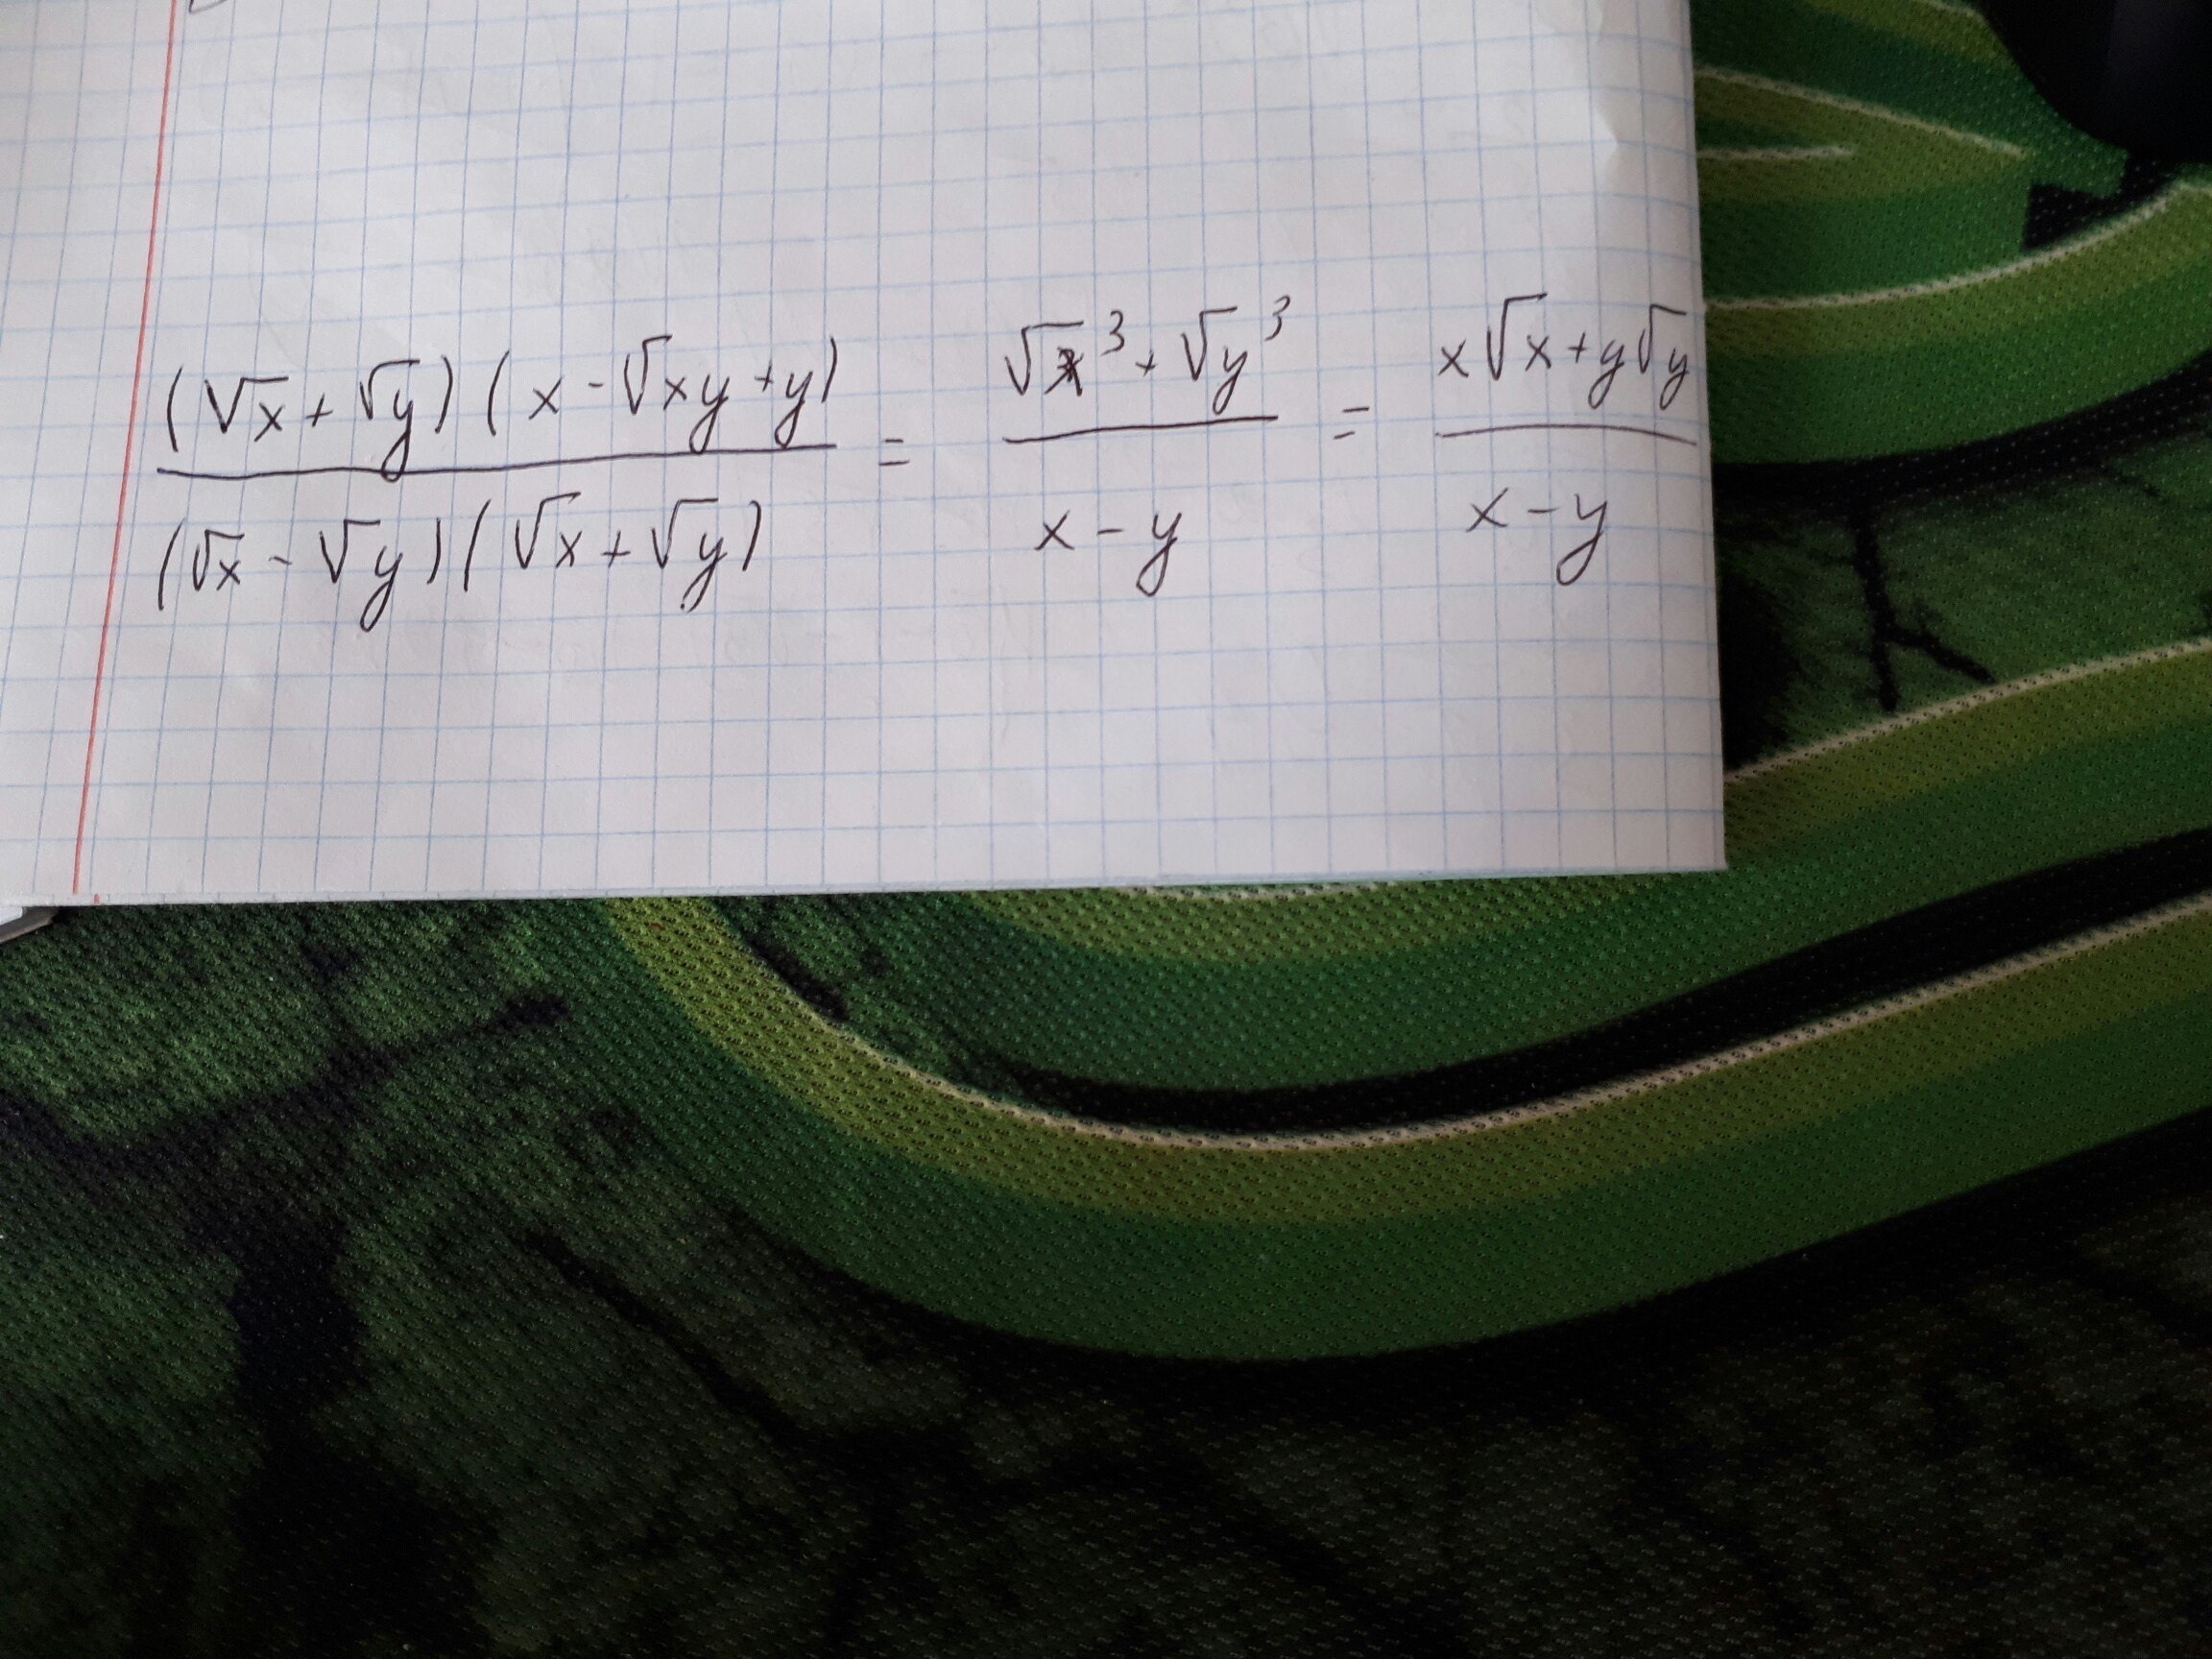 (√x + √y)(x - √xy + y) / (√x - √y)(√x + √y) = √x³ + √y³ / x - y = x√x + y√y / x - y